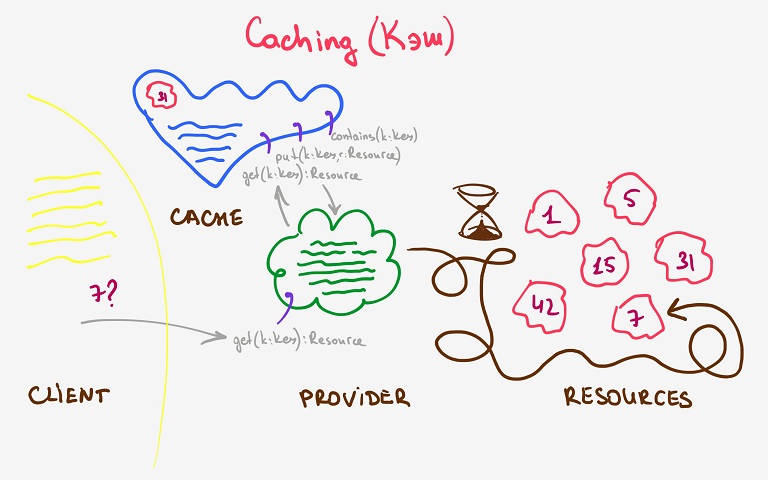 Caching (Кэш)
31
contains(k:Key)
put(k:Key,r:Resource)
get(k:Key):Resource
CACHE
1
5
15
31
42
7
7?
get(k:Key):Resource
CLIENT
PROVIDER
RESOURCES